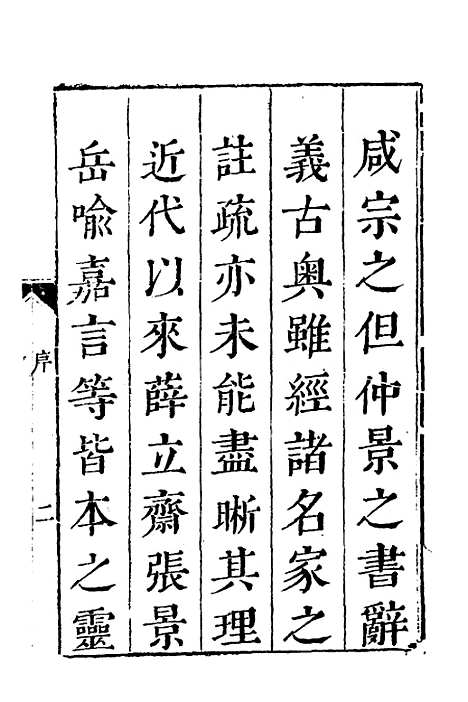 咸宗之但仲景之書辭
義古奧雖經諸名家之
註疏亦未能盡晰其理
近代以來薛立齋張景
岳喩嘉言等皆本之靈
序
二